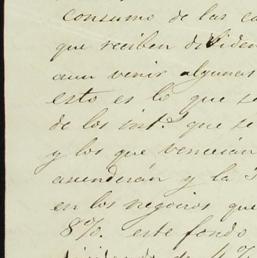 consumo de las ca
que reciben dividen
aun venir algunas
esto es lo que se
de los int.s que se
y los que venceran
ascenderán y la
en los negocios que
8%. este fondo
de 4%